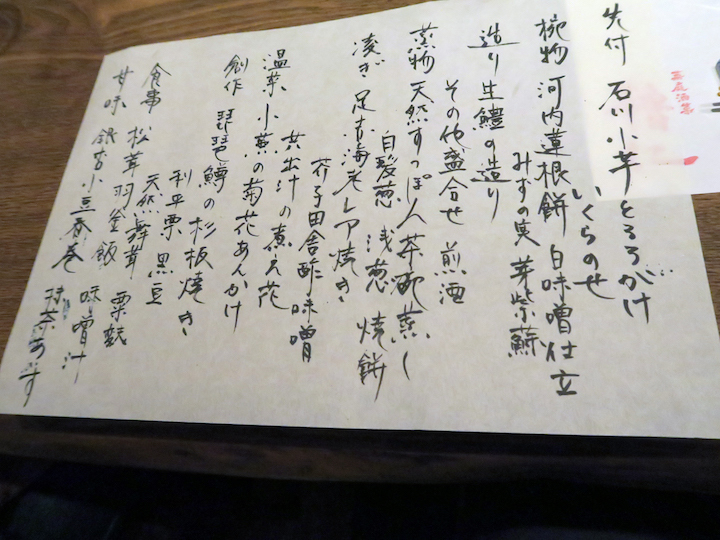 先付 石川小芋とろろがけ
いくらのせ
椀物 河内蓮根餅 白味噌仕立
みずの実 芽紫蘇
造り 生鱧の造り
その他盛合せ 煎酒
蒸物 天然すっぽん茶碗蒸し
白髪葱 浅葱 焼餅
凌ぎ 足赤海老レア焼き
芥子田舎酢味噌
温菜 小蕪の菊花あんかけ
共出汁の煮える花
創作 琵琶鱒の杉板焼き
利平栗 黒豆
食事 松茸羽釜飯 味噌汁
天然舞茸 粟麩
甘味 小豆 抹茶